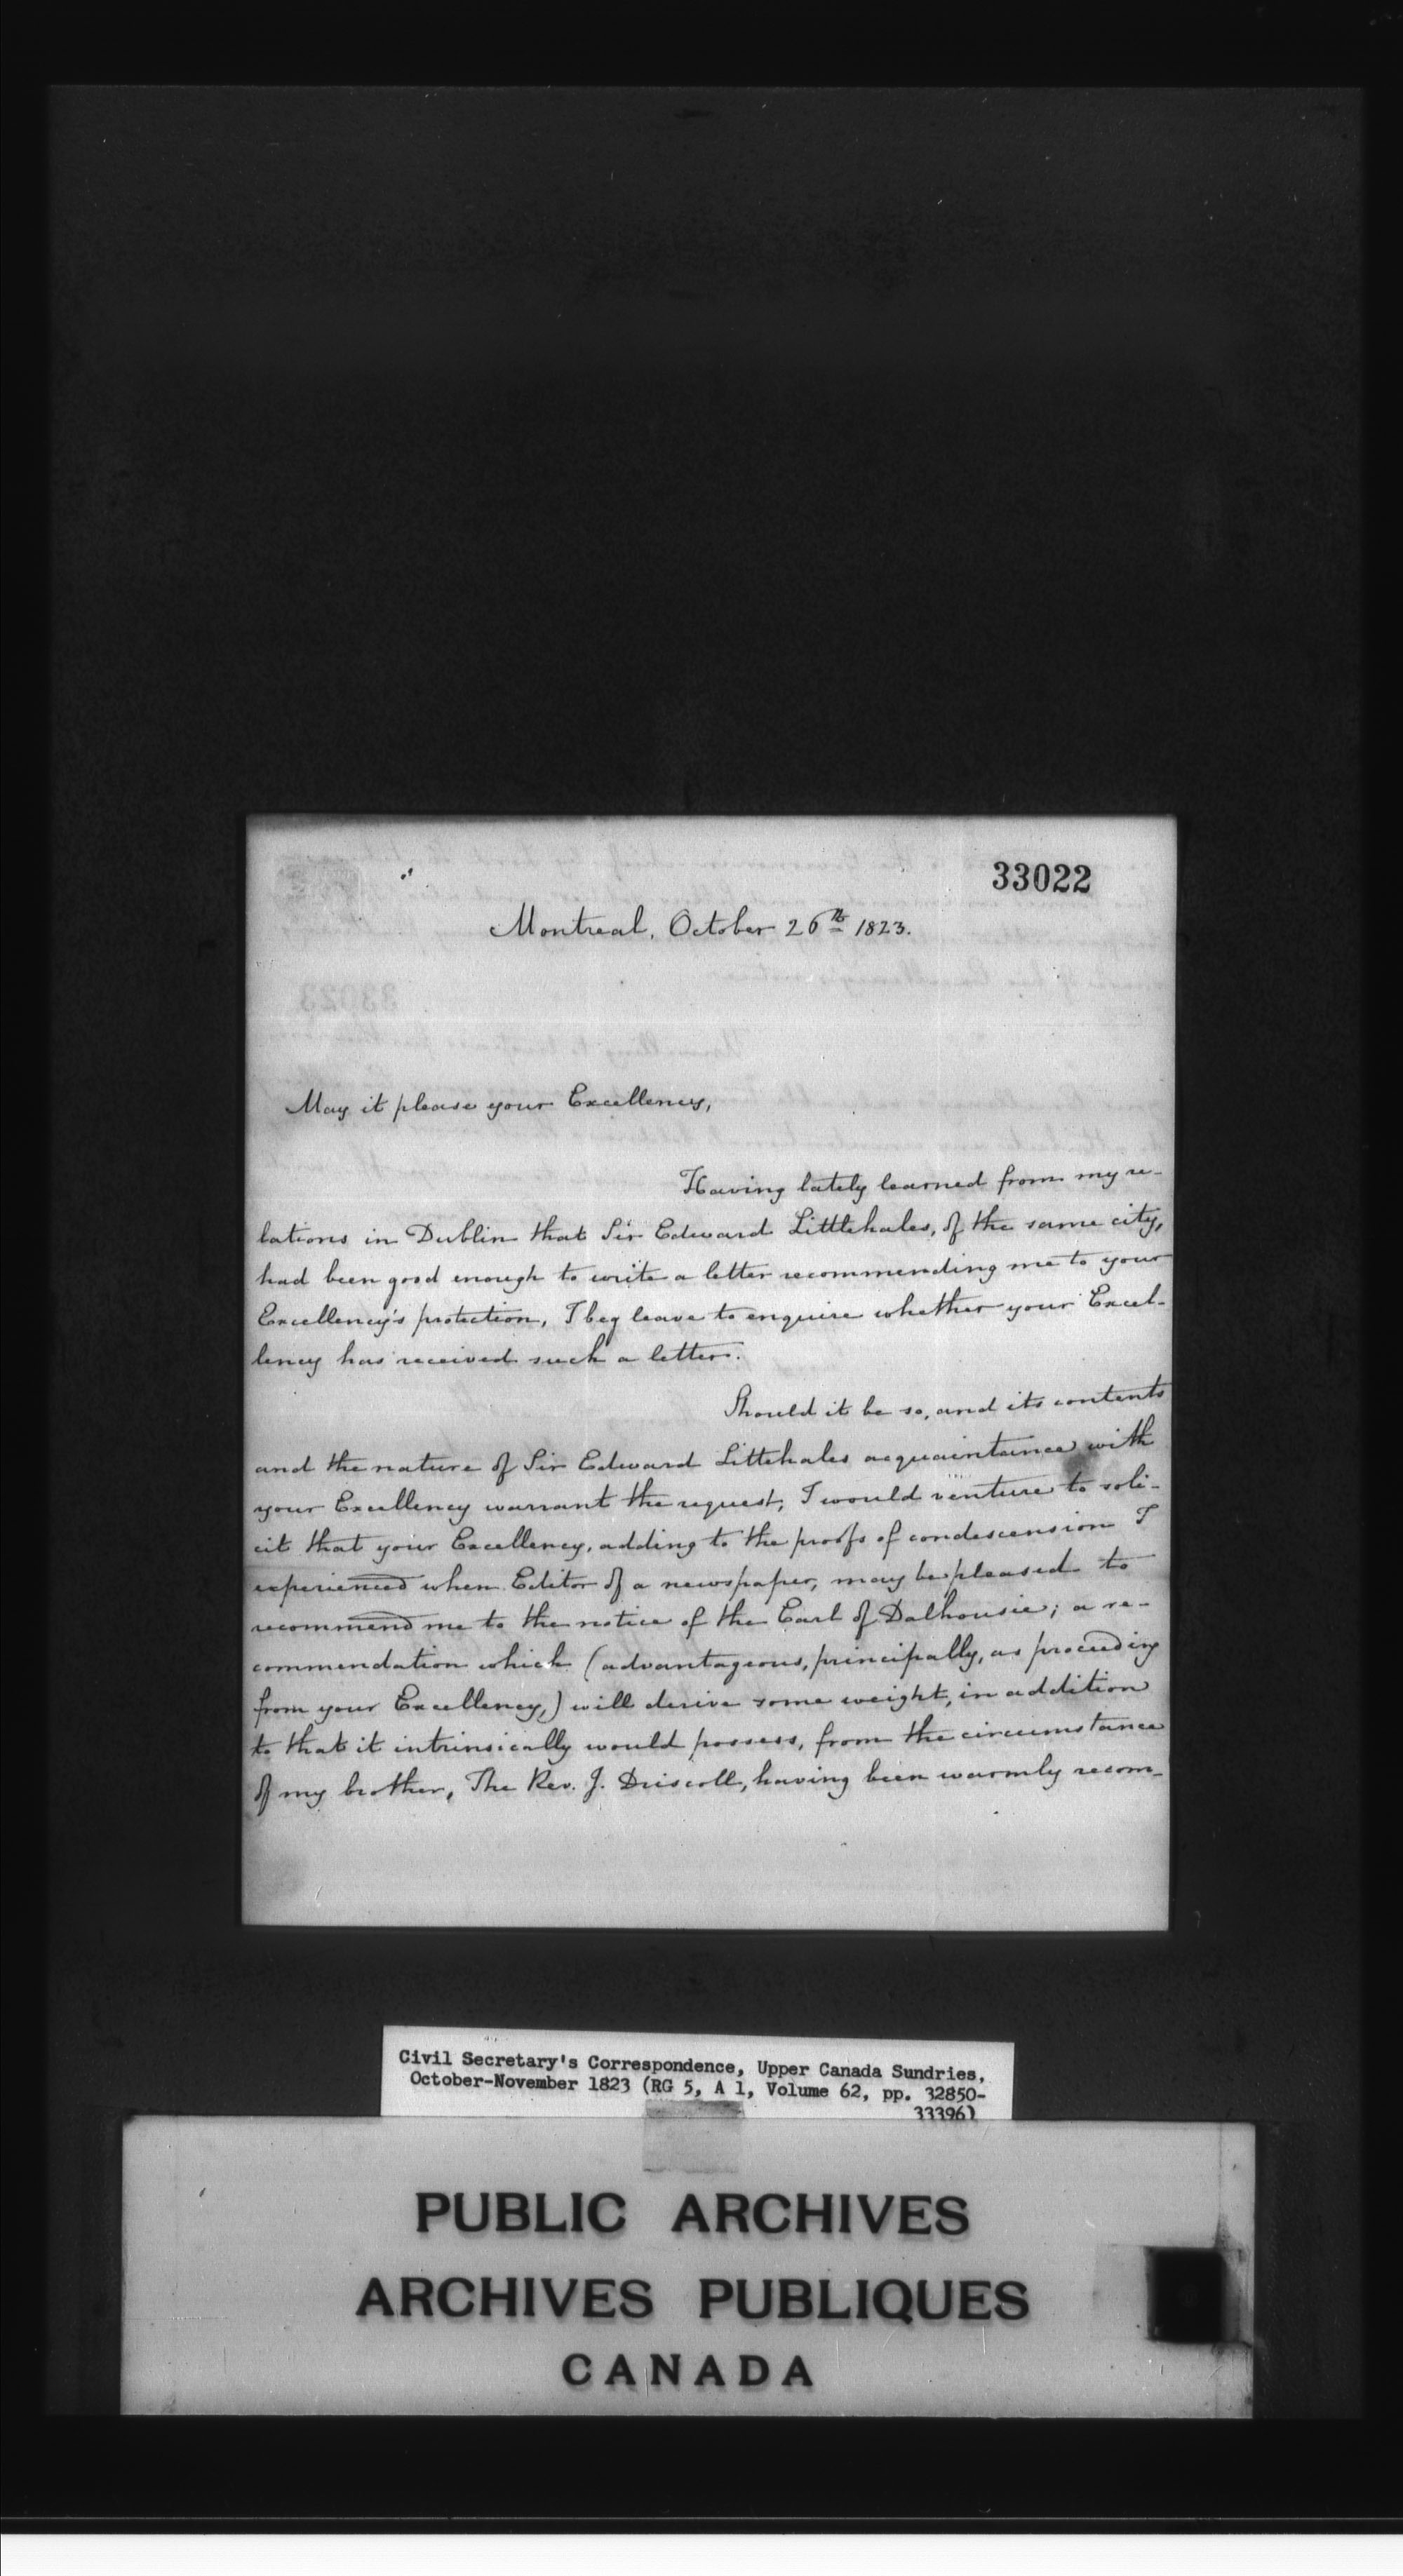 33022
Montreal, October 26th 1823.
33023
May it please your Excellency,
Having lately learned from my re-
lations in Dublin that Sir Edward Littlehales, of the same city,
had been good enough to write a letter recommending me to your
Excellency's protection, I beg leave to enquire whether your Excel-
lency has received such a letter.
Should it be so, and its contents
and the nature of Sir Edward Littlehales acquaintance with
your Excellency warrant the request, I would venture to soli-
cit that your Excellency, adding to the proofs of condescension I
experienced when Editor of a newspaper, may be pleased to
recommend me to the notice of the Earl of Dalhousie; a re-
commendation which (advantageous, principally, as proceeding
from your Excellency,) will derive some weight, in addition
to that it intrinsically would possess, from the circumstance
of my brother, The Rev. J. Driscoll, having been warmly recom-
Civil Secretary's Correspondence, Upper Canada Sundries,
October-November 1823 (RG 5, A 1, Volume 62, pp. 32850-
33396)
PUBLIC ARCHIVES
ARCHIVES PUBLIQUES
CANADA